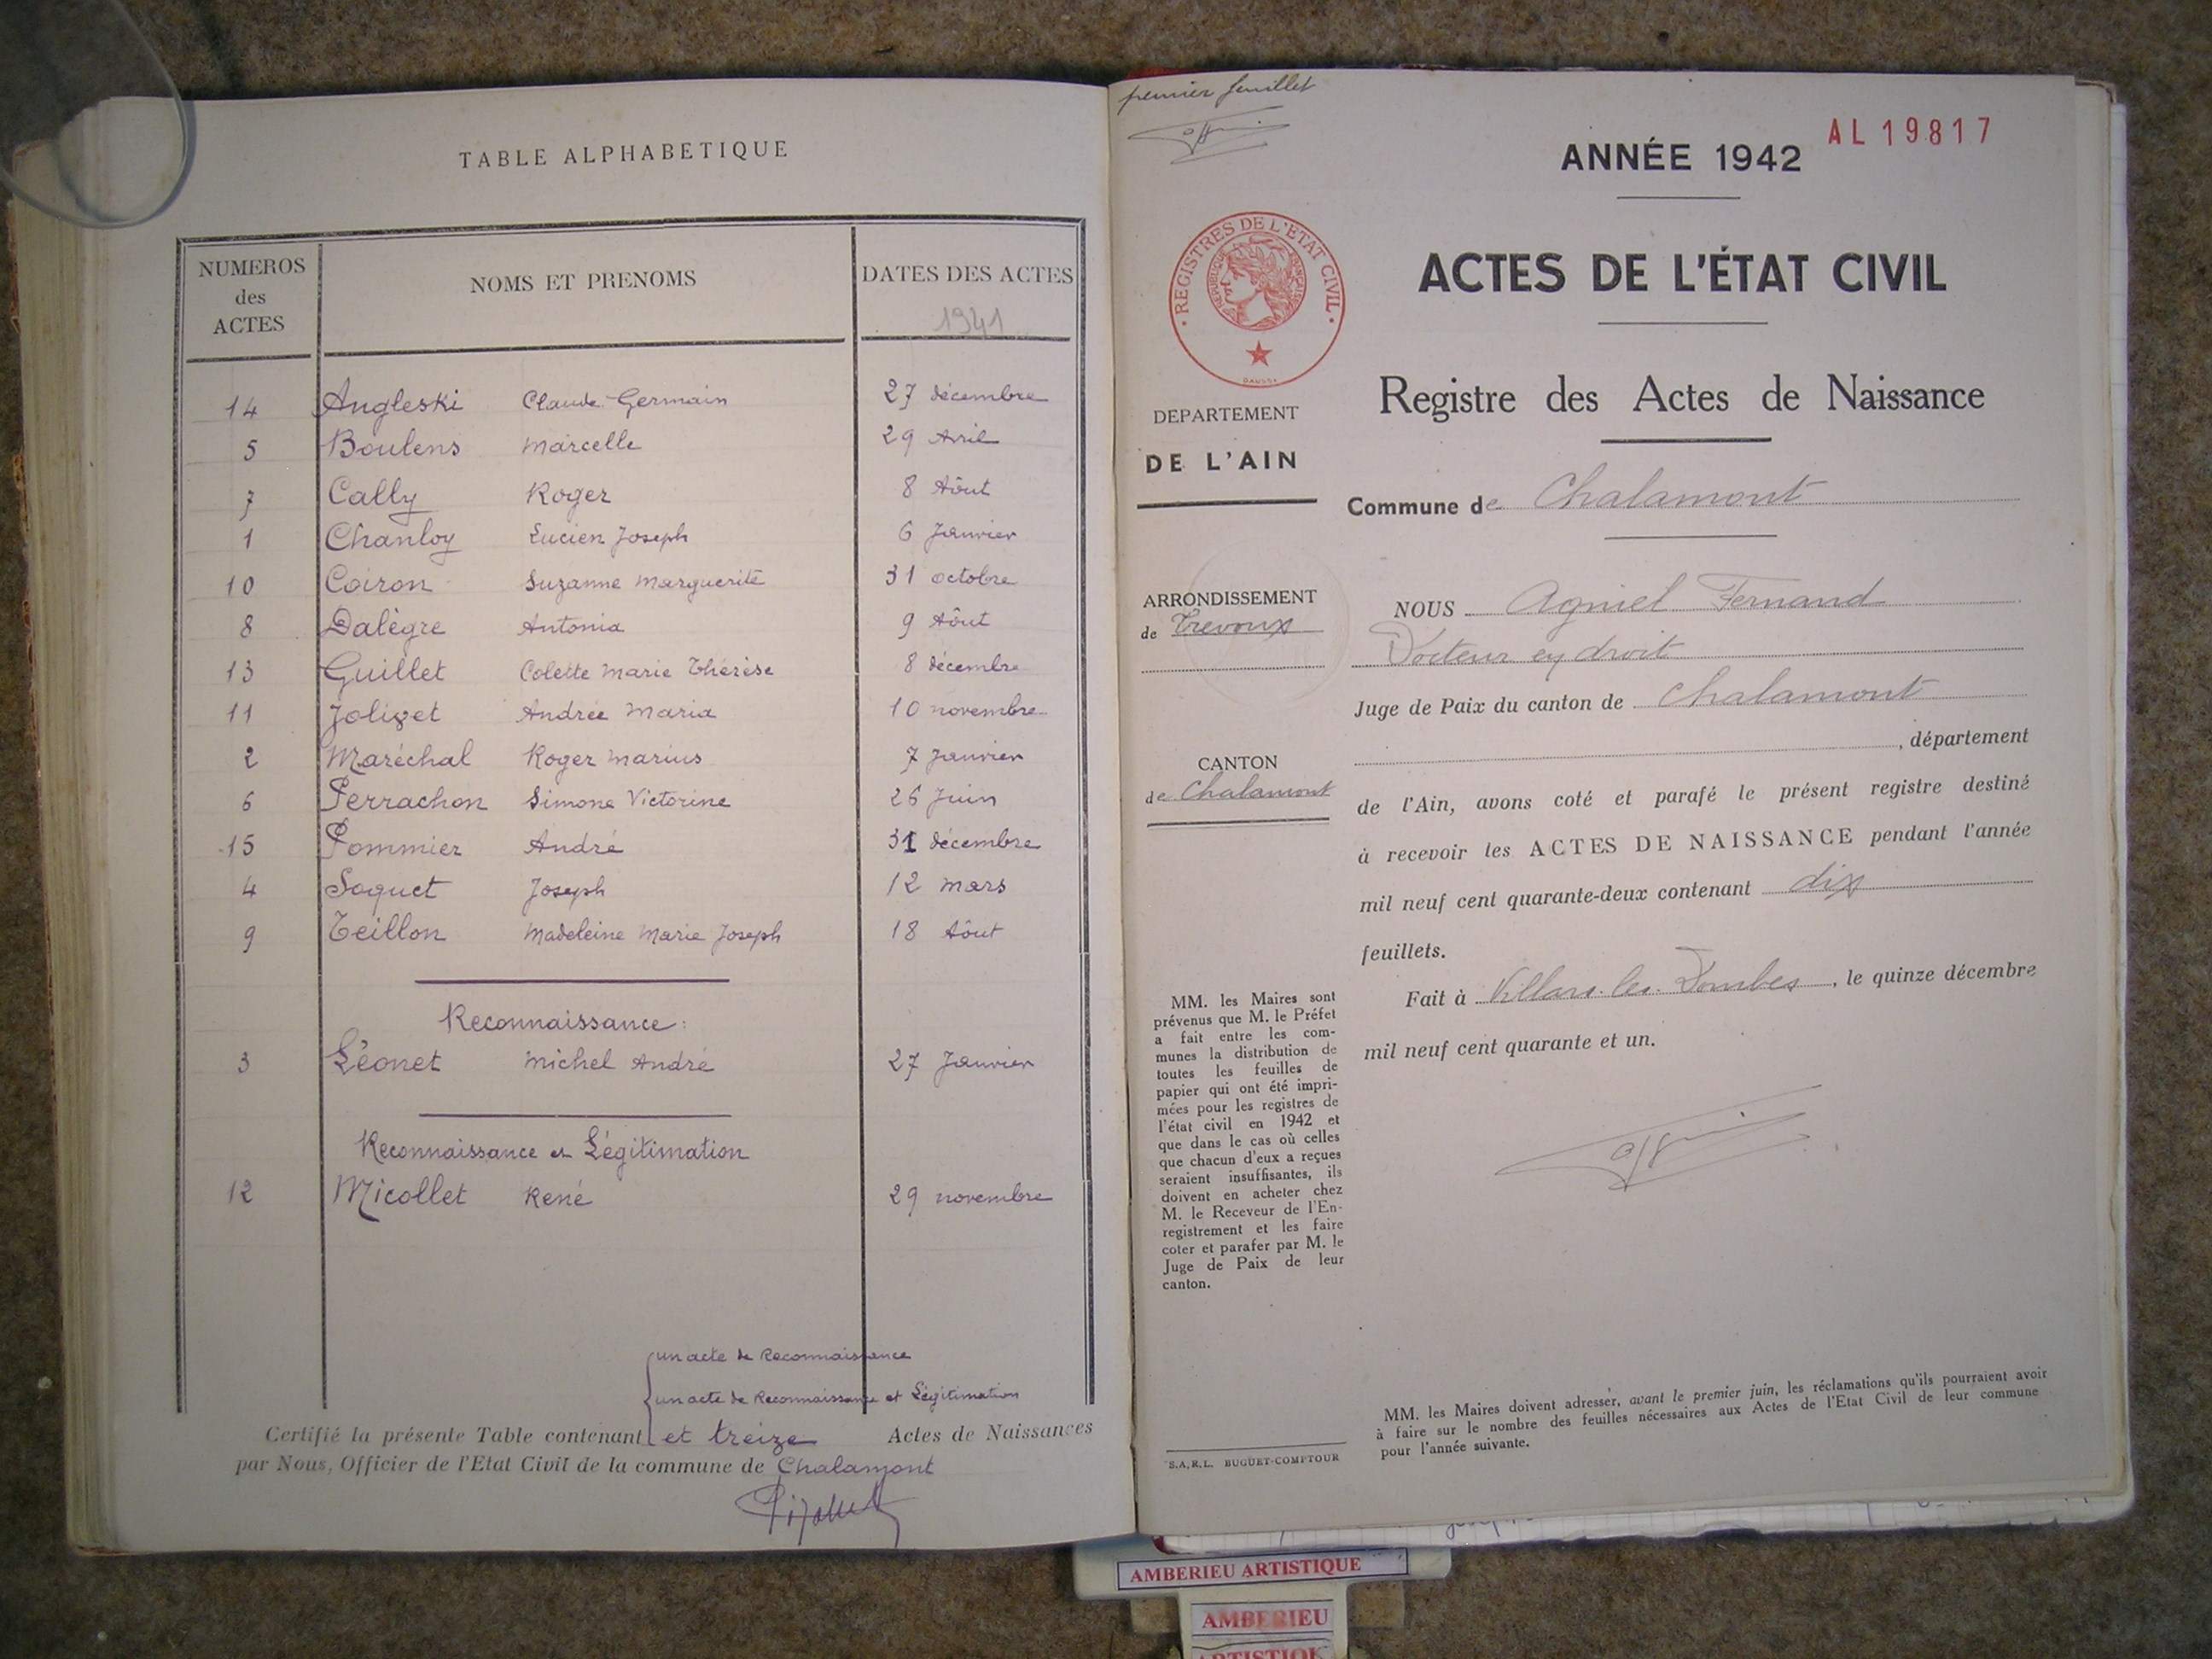 TABLE ALPHABETIQUE
NUMEROS des ACTES NOMS ET PRENOMS DATES DES ACTES
1941
14 Angleski Claude Germain 27 décembre
5 Boulens Marcelle 29 Avril
7 Cally Roger 8 Aôut
1 Chanloy Lucien Joseph 6 Janvier
10 Coiron Suzanne Marguerite 31 octobre
8 Dalègre Antonia 9 Aôut
13 Guillet Colette Marie Thérèse 8 décembre
11 Andrée Maria 10 novembre
2 Maréchal Roger Marius 7 Janvier
6 Perrachon Simone Victorine 26 Juin
15 Pommier André 31 décembre
4 Soquet Joseph 12 mars
9 Teillon Madeleine Marie Joseph 18 Aôut
Reconnaissance:
3 Léonet Michel André 27 Janvier
Reconnaissance et Légitimation
12 Micollet René 29 novembre
un acte de Reconnaissance
un acte de Reconnaissance et Légitimation
Certifié la présente Table contenant et treize Actes de Naissances
par Nous, Officier de l'Etat Civil de la commune de Chalamont
premier feuillet
ANNÉE 1942
AL19817
ACTES DE L'ÉTAT CIVIL
REGISTRES DE L'ETAT CIVIL
REPUBLIQUE FRANÇAISE
Registre des Actes de Naissance
DEPARTEMENT
DE L'AIN
Commune de Chalamont
ARRONDISSEMENT
de Trevoux
NOUS Agniel Fernand
Docteur en droit
Juge de Paix du canton de Chalamont
, département
CANTON
de Chalamont
de l'Ain, avons coté et parafé le présent registre destiné
à recevoir les ACTES DE NAISSANCE pendant l'année
mil neuf cent quarante-deux contenant dix
feuillets.
Fait à Villars-les-Dombes, le quinze décembre
mil neuf cent quarante et un.
MM. les Maires sont
prévenus que M. le Préfet
a fait entre les com-
munes la distribution de
toutes les feuilles de
papier qui ont été impri-
mées pour les registres de
l'état civil en 1942 et
que dans le cas où celles
que chacun d'eux a reçues
seraient insuffisantes, ils
doivent en acheter chez
M. le Receveur de l'En-
registrement et les faire
coter et parafer par M. le
Juge de Paix de leur
canton.
MM. les Maires doivent adresser, avant le premier juin, les réclamations qu'ils pourraient avoir
à faire sur le nombre des feuilles nécessaires aux Actes de l'Etat Civil de leur commune
pour l'année suivante.
S.A.R.L. BUGUET-COMPTOUR
AMBERIEU ARTISTIQUE
AMBERIEU